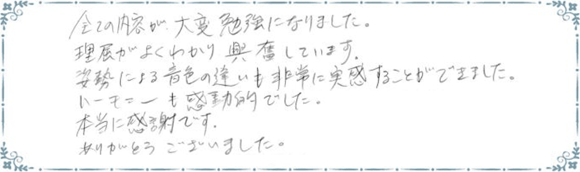 全ての内容が、大変勉強になりました。
理屈がよくわかり興奮しています。
姿勢による音色の違いも非常に実感することができました。
ハーモニーも感動的でした。
本当に感謝です。
ありがとうございました。